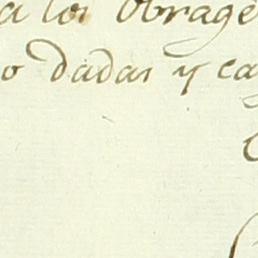 a los Obrage
o dadas y ca